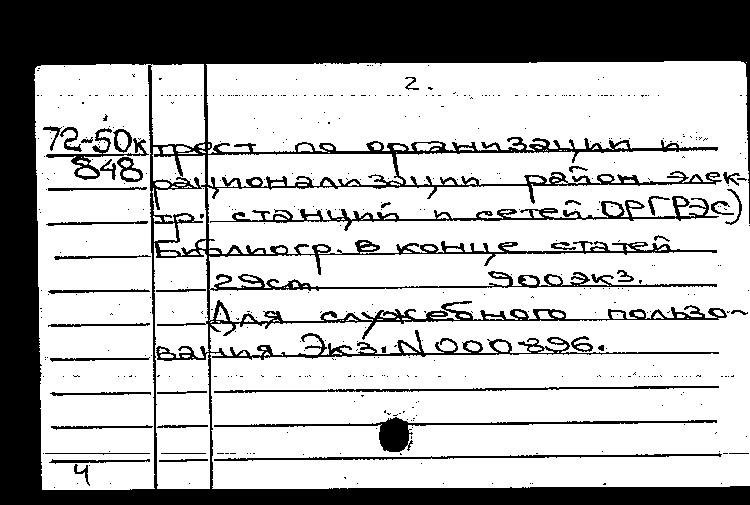 2.
72-50к трест по организации и
848 рационализации район. элек-
тр. станций и сетей. ОРГРЭС)
Библиогр. в конце статей
29см. 900экз.
Для служебного пользо-
вания. Экз. N 000896.
4